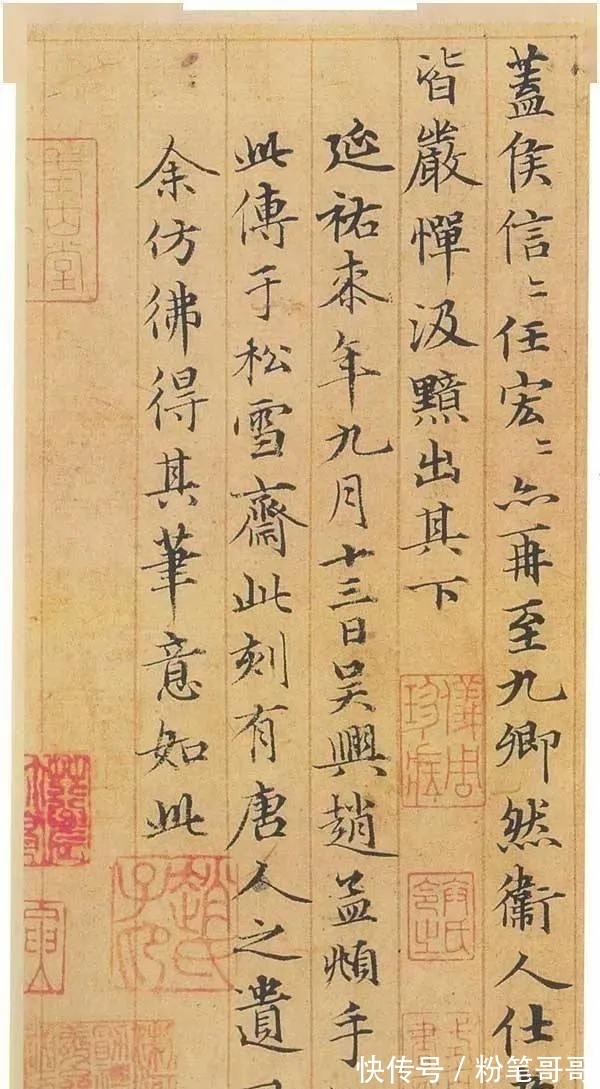 蓋侯信〻任宏〻亦再至九卿然衛人仕
皆嚴憚汲黯出其下
延祐柒年九月十三日吳興趙孟頫手
此傳于松雪齋此刻有唐人之遺
余仿彿得其筆意如此
儀周珍藏
趙氏子昂
快传号／粉笔哥哥